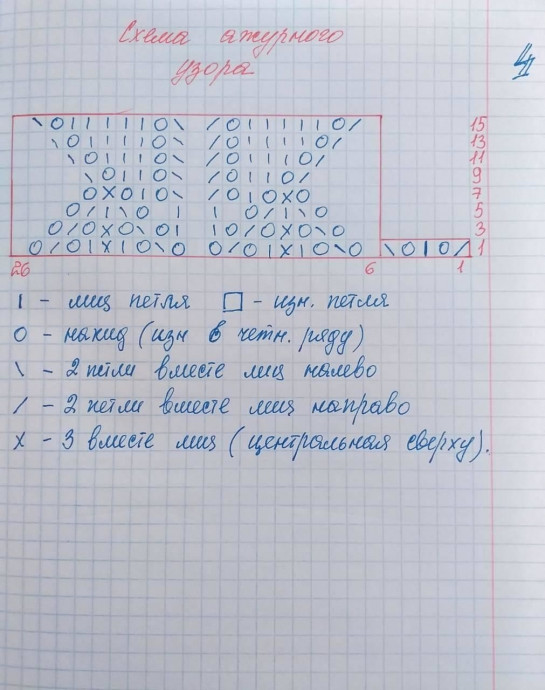 Схема ажурного
узора
4
\ O I I I I I O \ / O I I I I I O / 15
\ O I I I I O \ / O I I I I O / 13
\ O I I I O \ / O I I I O / 11
\ O I I O \ / O I I O / 9
O X O I O \ / O I O X O 7
O / I \ O I I O / I \ O 5
O / O X O \ O I I O / O X O \ O 3
O / O I X I O \ O O / O I X I O \ O \ O I O / 1
26 6 1
I - лиц петля □ - изн. петля
O - накид (изн в четн. ряду)
\ - 2 петли вместе лиц налево
/ - 2 петли вместе лиц направо
X - 3 вместе лиц (центральная сверху).